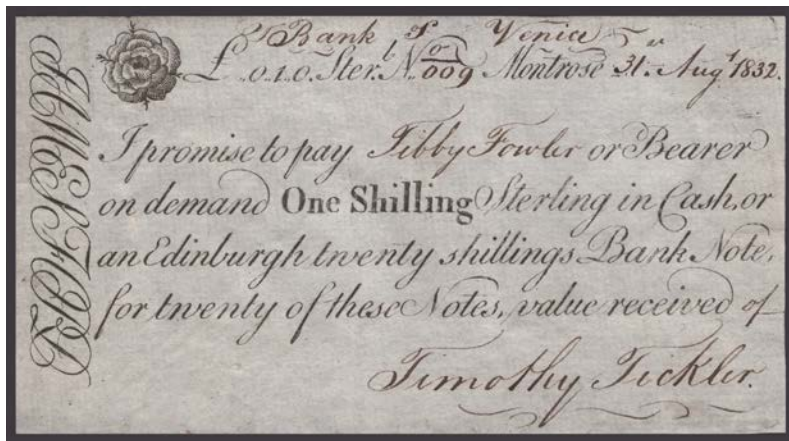 Bank of Venice
£ 0.1.0. Ster. No 009 Montrose 31st Augt 1832.
I promise to pay Tibby Fowler or Bearer
on demand One Shilling Sterling in Cash, or
an Edinburgh twenty shillings Bank Note,
for twenty of these Notes, value received of
Timothy Tickler.